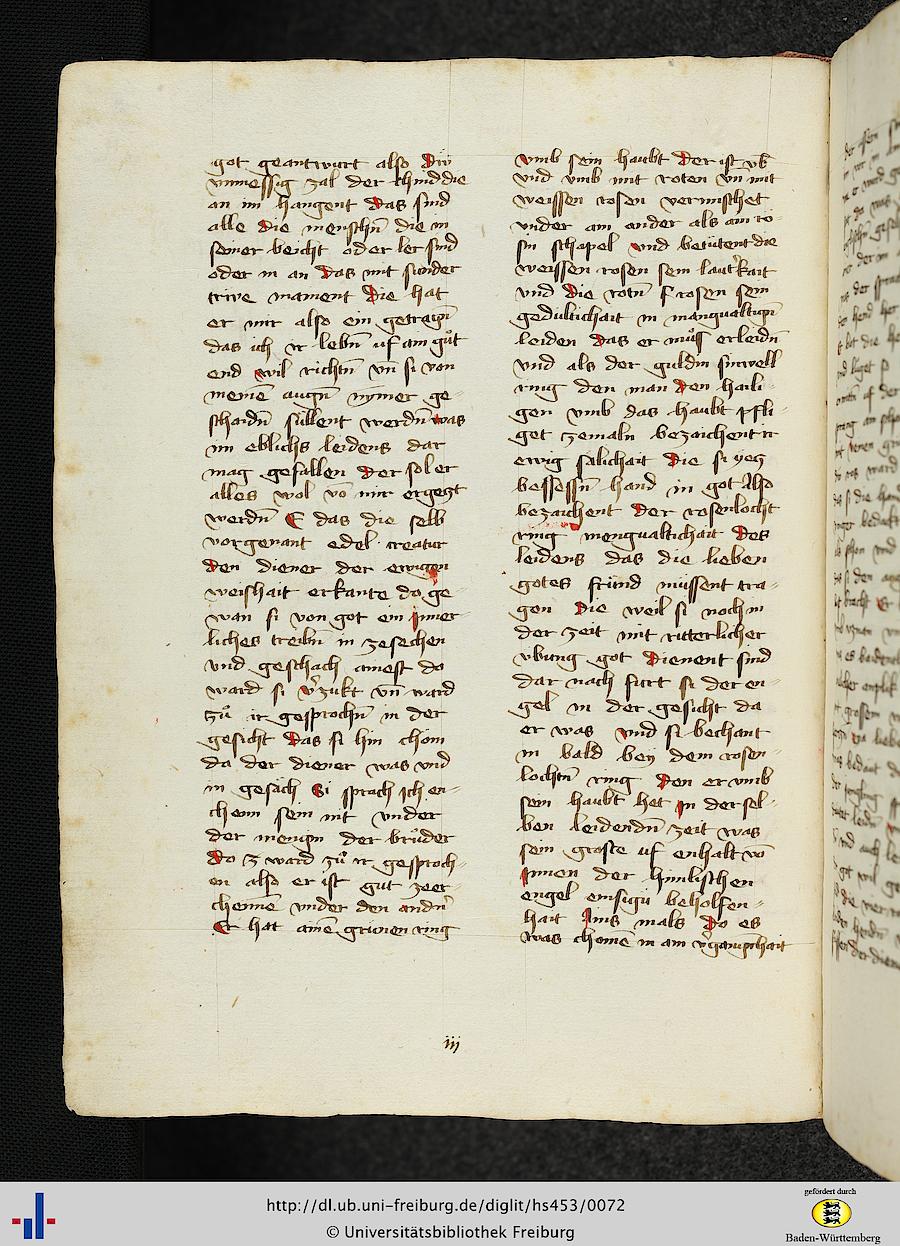 got geantwurt also Diu
vnmessig zal der chind die
an im hangent Das sind
alle Die menschn̄ die in
seiner beicht oder ler sind
oder im an Das mit sunder
triwe mainent Die hat
er mir also ein getragn̄
das ich ir lebn̄ uf ain gůt
end wil richtn̄ vn̄ si von
meinē augn̄ nymer ge-
schaidn̄ süllent werdn̄ was
im eblichs leidens dar
mag gefallen Der sol er
alles wol vō mir ergezt
werdn̄ E das die selb
vorgenant edel creatur
Den diener der ewigen
weishait erkante do ge-
wan si von got ein inner
liches treibn̄ in zesechen
vnd geschach ainest do
ward si v̓zukt vn̄ ward
zů ir gesprochn̄ in der
gesicht Das si hin chom
da der diener was vnd
in gesäch Si sprach Ich en-
chenn sein nit vnder
der menign der brůder
Do z ward zů ir gesproch-
en also er ist gut zeer-
chennē vnder den andn̄
Er hat ainē grünen ring
vmb sein haubt Der ist vb̄
vnd vmb mit roten vn̄ mit
weissen rosen vermischet
vnder ain ander als ain ro
sin schapel vnd betütent die
weissen rosen sein laut̓kait
vnd Die rotn̄ rosen sein
gedultichait in mangualtign̄
leiden Das er můss erleidn̄
vnd als der guldin sinwell
ring den man Den haili-
gen vmb das haubt pfli-
get zemaln bezaichent ir
ewig sälichait Die si yez
bessessn̄ hand in got Also
bezaichent Der rosenlocht
ring mengualtichait Des
leidens das die lieben
gotes fründ müssent tra-
gen Die weil si noch in
der zeit mit ritterlicher
vbung got Dienent sind
dar nach fürt si der en-
gel in der gesicht da
er was vnd si bechant
in bald bey dem rosen-
lochtn̄ ring Den er vmb
sein haubt het In der sel-
ben leidendn̄ zeit was
sein gröste uf enthalt vō
Innen der himlischen
engel emsigü beholfen-
hait Ains mals Do es
was chomē in ain v̓gangenhait
iij
http://dl.ub.uni-freiburg.de/diglit/hs453/0072
© Universitätsbibliothek Freiburg
gefördert durch
Baden-Württemberg